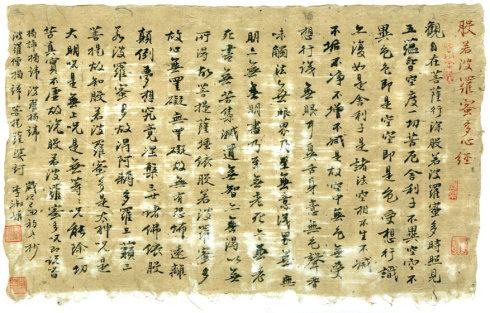 般若波羅蜜多心經
觀自在菩薩行深般若波羅蜜多時照見
五蘊皆空度一切苦厄舍利子色不異空空不
異色色即是空空即是色受想行識
亦復如是舍利子是諸法空相不生不滅
不垢不淨不增不減是故空中無色無受
想行識無眼耳鼻舌身意無色聲香
味觸法無眼界乃至無意識界無無
明亦無無明盡乃至無老死亦無老
死盡無苦集滅道無智亦無得以無
所得故菩提薩埵依般若波羅蜜多
故心無罣礙無罣礙故無有恐怖遠離
顛倒夢想究竟涅槃三世諸佛依般
若波羅蜜多故得阿耨多羅三藐三
菩提故知般若波羅蜜多是大神咒是
大明咒是無上咒是無等等咒能除一切
苦真實不虛故說般若波羅蜜多咒即說咒曰
揭諦揭諦波羅揭諦
波羅僧揭諦菩提薩婆訶